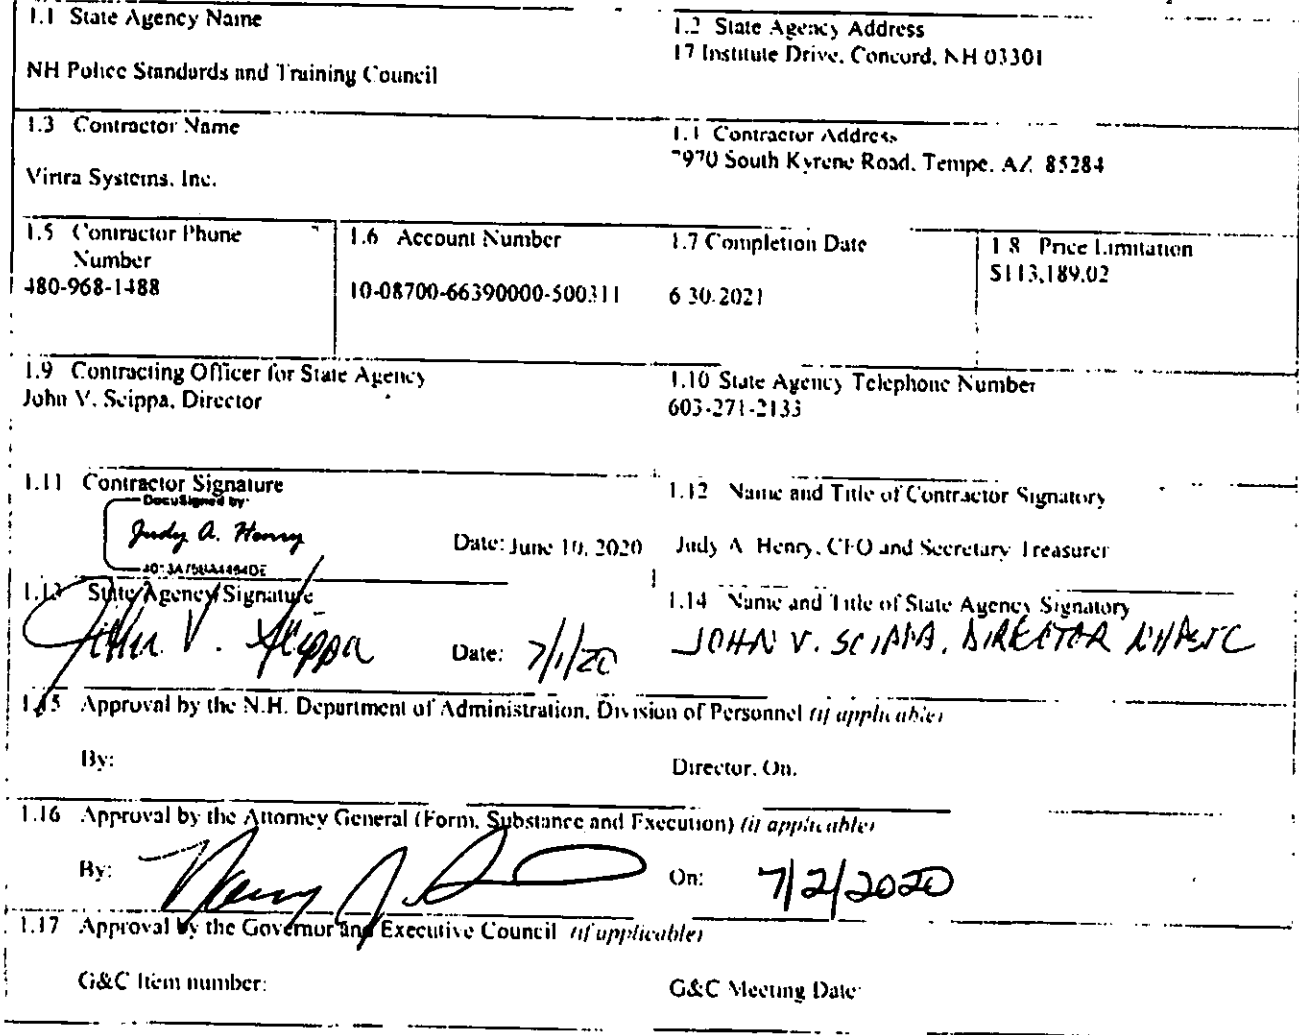 1.1 State Agency Name
1.2 State Agency Address
17 Institute Drive, Concord, NH 03301
NH Police Standards and Training Council
1.3 Contractor Name
1.4 Contractor Address
7970 South Kyrene Road, Tempe, AZ 85284
Virtra Systems, Inc.
1.5 Contractor Phone
Number
480-968-1488
1.6 Account Number
10-08700-66390000-500311
1.7 Completion Date
6-30-2021
1.8 Price Limitation
$113,189.02
1.9 Contracting Officer for State Agency
John V. Scippa, Director
1.10 State Agency Telephone Number
603-271-2133
1.11 Contractor Signature
DocuSigned by:
Judy A. Henry
Date: June 10, 2020
1.12 Name and Title of Contractor Signatory
Judy A. Henry, CFO and Secretary Treasurer
1.13 State Agency Signature
John V. Scippa
Date: 7/1/20
1.14 Name and Title of State Agency Signatory
JOHN V. SCIPPA, DIRECTOR NHPSTC
1.15 Approval by the N.H. Department of Administration, Division of Personnel (if applicable)
By:
Director, On:
1.16 Approval by the Attorney General (Form, Substance and Execution) (if applicable)
By:
On: 7/2/2020
1.17 Approval by the Governor and Executive Council (if applicable)
G&C Item number:
G&C Meeting Date: